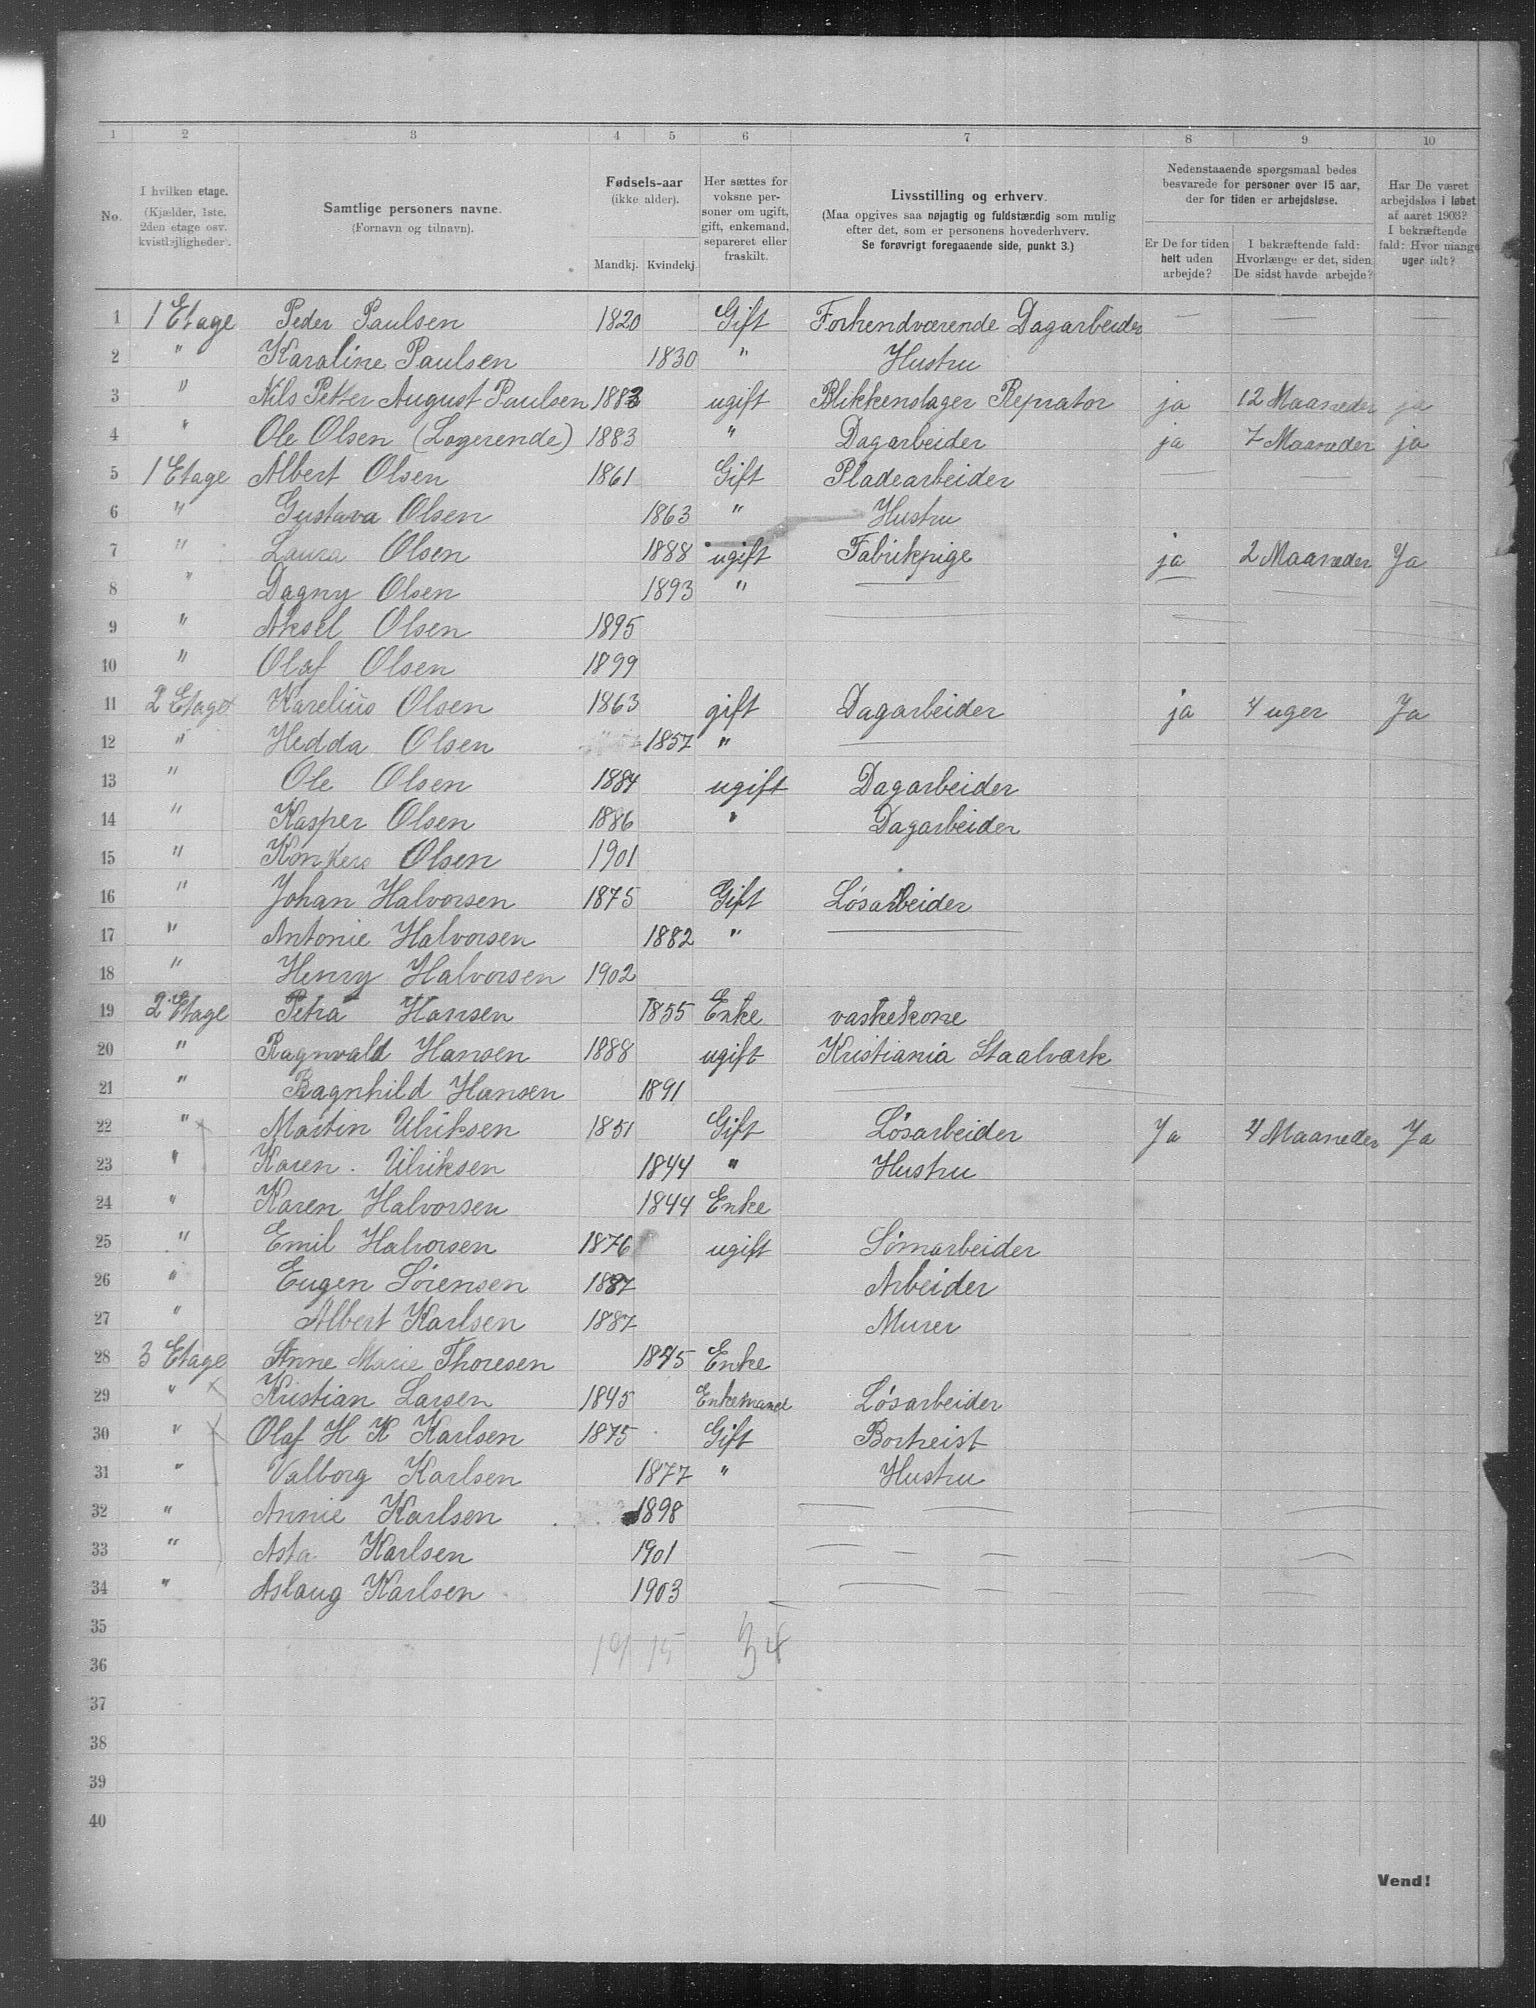 1 2 3 4 5 6 7 8 9 10
No.
I hvilken etage.
(Kjælder, 1ste,
2den etage osv.
kvistlejligheder).
Samtlige personers navne.
(Fornavn og tilnavn).
Fødsels-aar
(ikke alder).
Mandkj. Kvindekj.
Her sættes for
voksne per-
soner om ugift,
gift, enkemand,
separeret eller
fraskilt.
Livsstilling og erhverv.
(Maa opgives saa nøjagtig og fuldstændig som mulig
efter det, som er personens hovederhverv.
Se forøvrigt foregaaende side, punkt 3.)
Nedenstaaende spørgsmaal bedes
besvarede for personer over 15 aar,
der for tiden er arbejdsløse.
Er De for tiden
helt uden
arbejde?
I bekræftende fald:
Hvorlænge er det, siden
De sidst havde arbejde?
Har De været
arbejdsløs i løbet
af aaret 1903?
I bekræftende
fald: Hvor mange
uger ialt?
1 1 Etage Peder Paulsen 1820 Gift Forhendværende Dagarbeider — — —
2 " Karaline Paulsen 1830 " Hustru
3 " Nils Petter August Paulsen 1883 ugift Blikkenslager Reprator ja 12 Maaneder ja
4 " Ole Olsen (Logerende) 1883 " Dagarbeider ja 7 Maaneder ja
5 1 Etage Albert Olsen 1861 Gift Pladearbeider — — —
6 " Gustava Olsen 1863 " Hustru
7 " Laura Olsen 1888 ugift Fabrikpige ja 2 Maaneder Ja
8 " Dagny Olsen 1893 " — — — —
9 " Aksel Olsen 1895
10 " Olaf Olsen 1899
11 2 Etage Karelius Olsen 1863 gift Dagarbeider ja 4 uger Ja
12 " Hedda Olsen 1857 " —
13 " Ole Olsen 1884 ugift Dagarbeider
14 " Kasper Olsen 1886 " Dagarbeider
15 " Olsen 1901
16 " Johan Halvorsen 1875 Gift Løsarbeider
17 " Antonie Halvorsen 1882 " —
18 " Henry Halvorsen 1902
19 2 Etage Petra Hansen 1855 Enke vaskekone
20 " Ragnvald Hansen 1888 ugift Kristiania Staalværk
21 " Ragnhild Hansen 1891 —
22 " Martin Ulriksen 1851 Gift Løsarbeider Ja 4 Maaneder Ja
23 " Karen Ulriksen 1844 " Hustru
24 " Karen Halvorsen 1844 Enke
25 " Emil Halvorsen 1876 ugift Sømarbeider
26 " Eugen Sørensen 1887 Arbeider
27 " Albert Karlsen 1887 Murer
28 3 Etage Anne Marie Thoresen 1845 Enke
29 " Kristian Larsen 1845 Enkemand Løsarbeider
30 " Olaf H K Karlsen 1875 Gift
31 " Valborg Karlsen 1877 " Hustru
32 " Annie Karlsen 1898 — — — —
33 " Asta Karlsen 1901 — — — —
34 " Aslaug Karlsen 1903 — — — —
35
36 19 15 34
37
38
39
40
Vend!